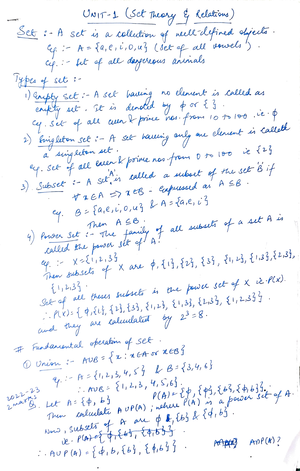 UNIT-1 (Set Theory & Relations)
Set :- A set is a collection of well-defined objects.
eg :- A = {a,e,i,o,u} (set of all vowels).
eg :- Set of all dangerous animals
Types of set :-
1) Empty Set :- A set having no element is called as
empty set. It is denoted by ϕ or { }.
eg. Set of all even & prime nos. from 10 to 100, i.e. ϕ
2) Singleton Set :- A set having only one element is called
a singleton set.
eg. Set of all even & prime nos from 0 to 100 ie {2}
3) Subset :- A set 'A' is called a subset of the set 'B' if
∀ x∈A ⇒ x∈B - expressed as A ⊆ B.
eg. B = {a,e,i,o,u} & A = {a,e,i}
Then A ⊆ B.
4) Power Set :- The family of all subsets of a set A is
called the power set of A.
eg :- X = {1,2,3}
Then subsets of X are ϕ, {1}, {2}, {3}, {1,2}, {1,3}, {2,3},
{1,2,3}.
Set of all these subsets is the power set of X i.e. P(X).
∴ P(X) = {ϕ, {1}, {2}, {3}, {1,2}, {1,3}, {2,3}, {1,2,3}}.
and they are calculated by 2³ = 8.
# Fundamental operation of set
① Union :- A∪B = {x : x∈A or x∈B}
eg :- A = {1,2,3,4,5} & B = {3,4,6}
∴ A∪B = {1,2,3,4,5,6}.
2022-23
2 marks
Q. Let A = {ϕ, b} P(A) = {ϕ, {ϕ}, {b}, {ϕ,b}}.
Then calculate A∪P(A); where P(A) is a power set of A.
Now, subsets of A are ϕ, {b} & {ϕ, b}.
i.e. P(A) = {ϕ, {b}, {ϕ,b}}
∴ A∪P(A) = {ϕ, b, {b}, {ϕ,b}}. A∩P(A)?